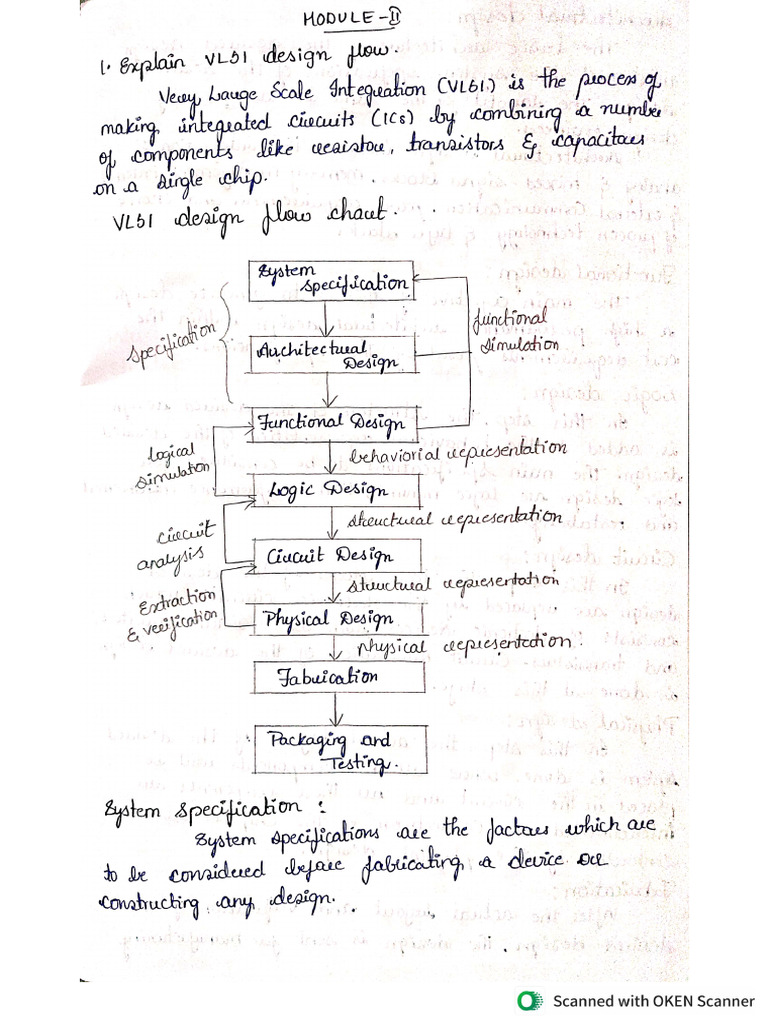 MODULE-II
1. Explain VLSI design flow.
Very Large Scale Integration (VLSI) is the process of
making integrated circuits (ICs) by combining a number
of components like resistor, transistors & capacitors
on a single chip.
VLSI design flow chart.
System
Specification
functional
simulation
Specification
Architectural
Design
Functional Design
Logical
simulation
behaviorial representation
Logic Design
structural representation
circuit
analysis
Circuit Design
structural representation
Extraction
& verification
Physical Design
physical representation
Fabrication
Packaging and
Testing.
System Specification :
System specifications are the factors which are
to be considered before fabricating a device or
constructing any design.
Scanned with OKEN Scanner